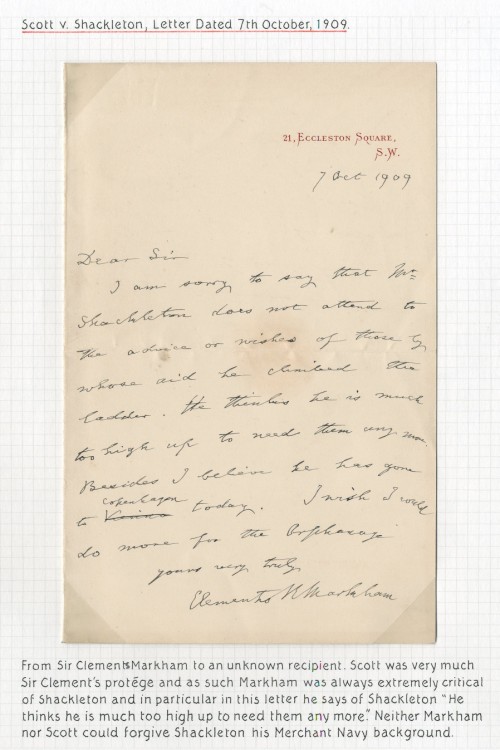 Scott v. Shackleton, Letter Dated 7th October, 1909.
21, Eccleston Square,
S.W.
7 Oct 1909
Dear Sir
I am sorry to say that Mr
Shackleton does not attend to
the advice or wishes of those by
whose aid he climbed the
ladder. He thinks he is much
too high up to need them any more.
Besides I believe he has gone
Copenhagen
to today. I wish I could
do more for the Orphanage
yours very truly
Clements R Markham
From Sir Clements Markham to an unknown recipient. Scott was very much
Sir Clement's protége and as such Markham was always extremely critical
of Shackleton and in particular in this letter he says of Shackleton "He
thinks he is much too high up to need them any more." Neither Markham
nor Scott could forgive Shackleton his Merchant Navy background.